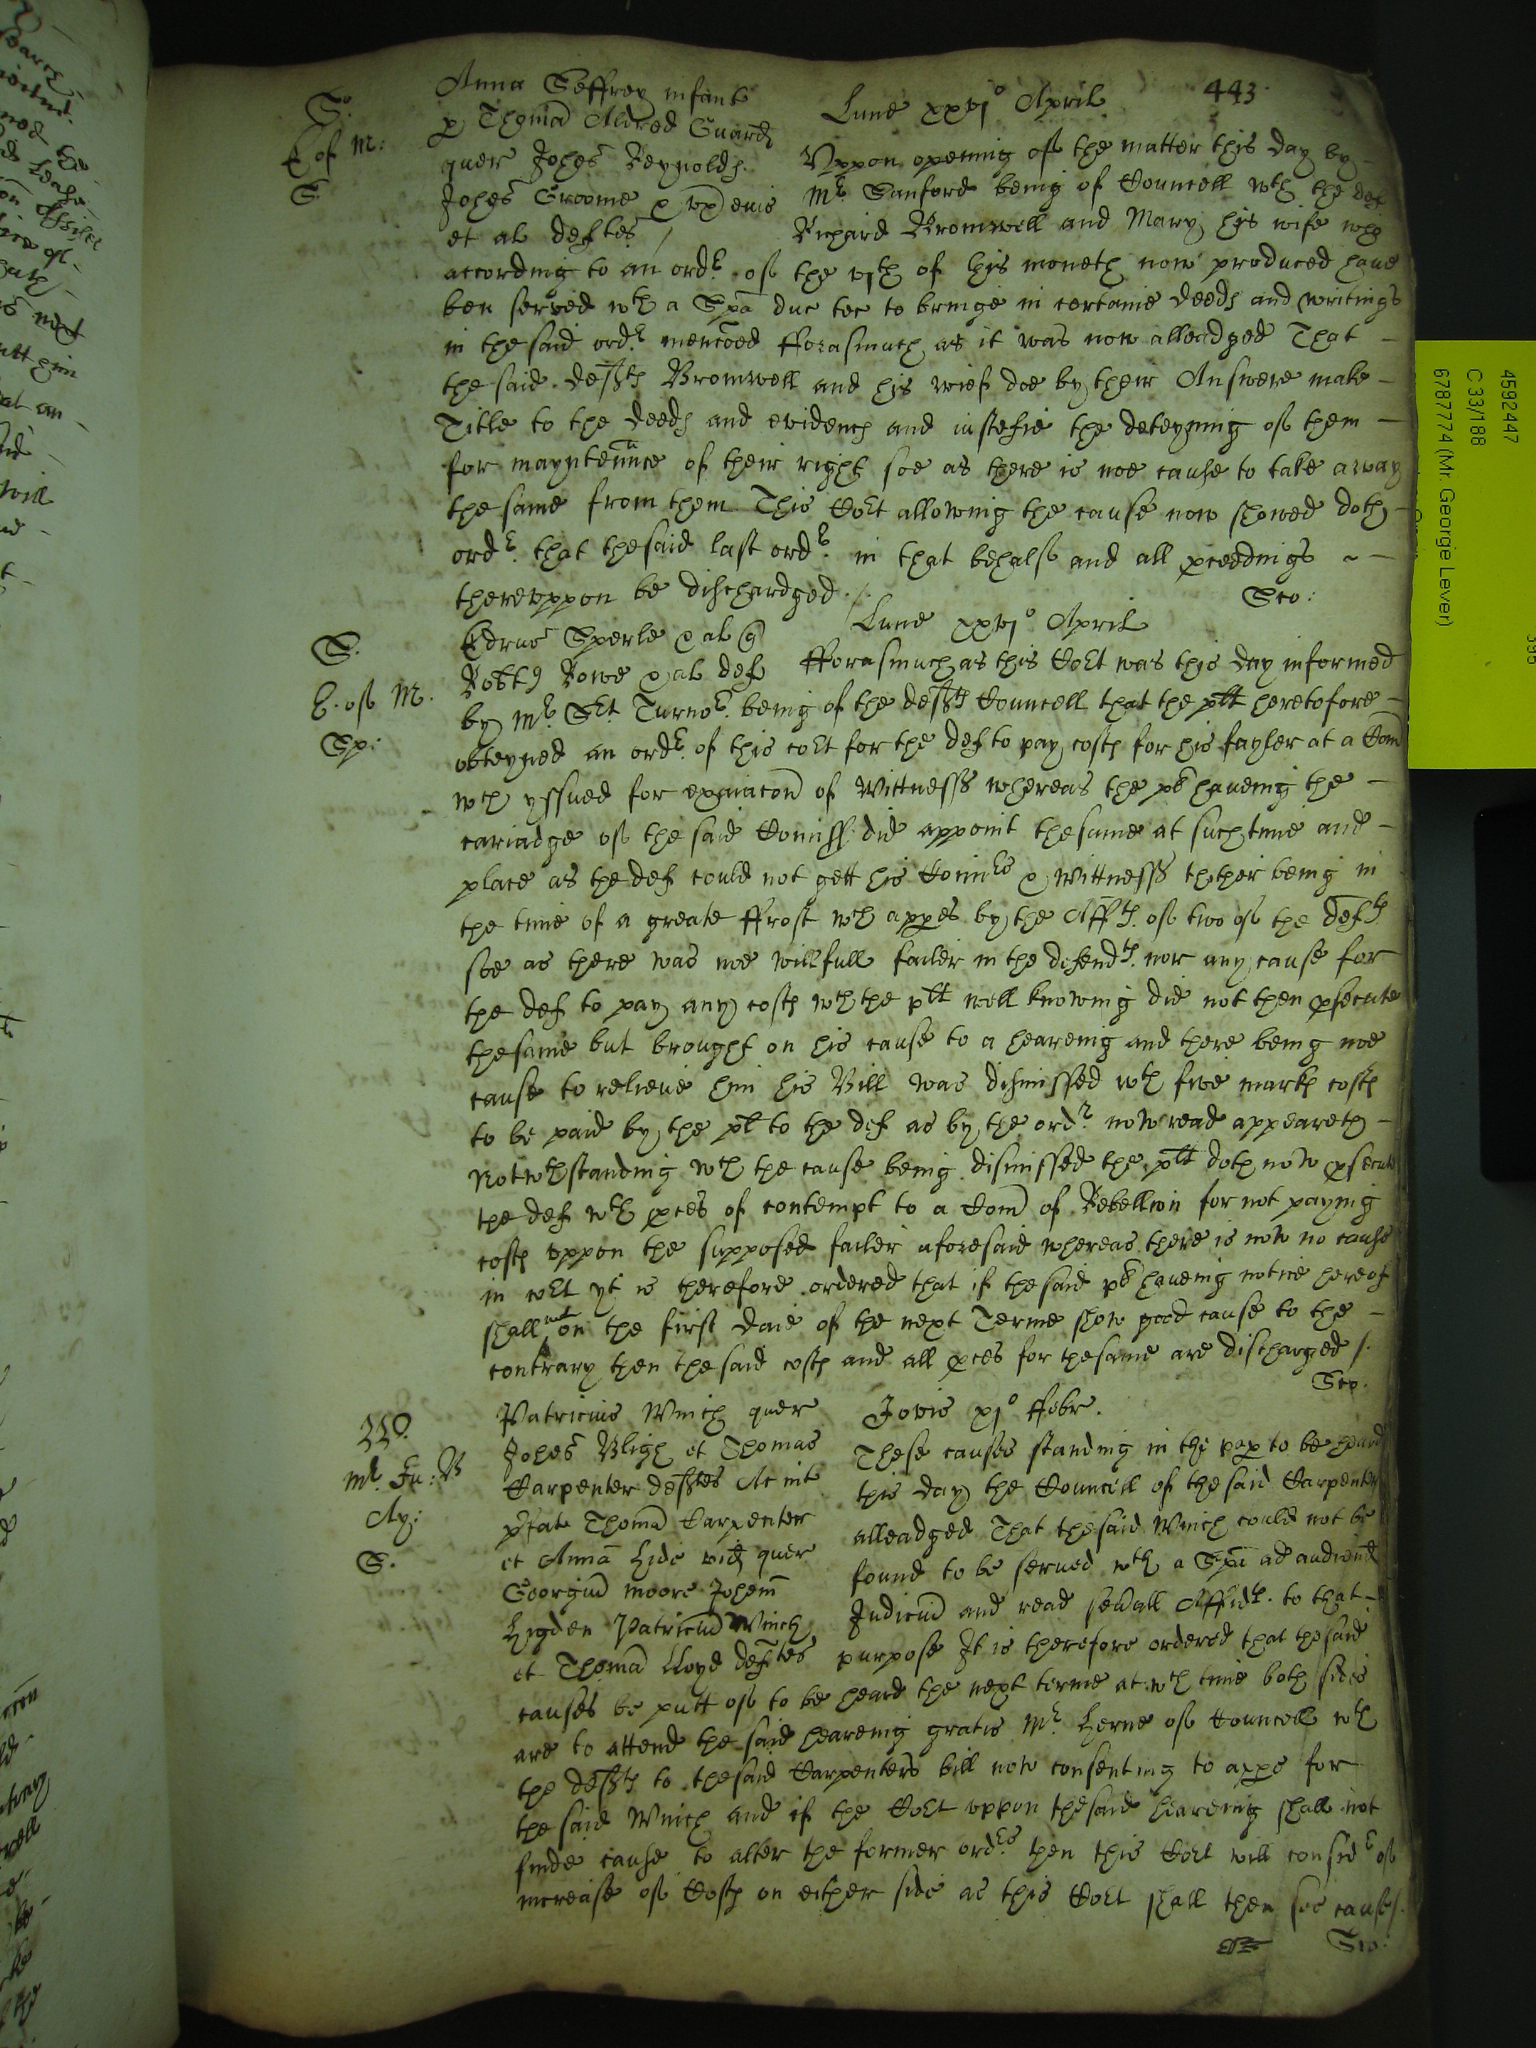 443
S.
E of M:
S.
Anna Jeffrey infant
p Thomã Aldred Guard
quer Johes Reynolds
Johes Groome & ux eius
et al deftes /
Lune xxvj° April
Uppon opening of the matter this day by
Mr Sanford being of Councell wth the def
Richard Bromwell and Mary his wife who
according to an ordr of the vjth of this moneth now produced have
ben served wth a Spa duc tec to bringe in certaine deeds and writings
in the said ordr mencoed fforasmuch as it was now alleadged That
the said defts Bromwell and his wief doe by their Answere make
Title to the deeds and evidences and iustefie the deteyning of them
for mayntennce of their right soe as there is noe cause to take away
the same from them This Cort allowing the cause now shewed doth
ordr that the said last ordr in that behalf and all pceedings
thereuppon be dischardged /.
Sco:
S.
E. of M.
Sp:
Edrus Sperle & al q
Robtus Rowe & al def
Lune xxvj° April
fforasmuch as this Cort was this day informed
by Mr Sert Turnor being of the defts Councell that the plt heretofore
obteyned an ordr of this cort for the def to pay costs for his fayler at a Com
wch yssued for exaiacon of Wittnesses whereas the pl haveing the
cariadge of the said Comiss did appoint the same at such time and
place as the def could not gett his Comrs & Wittnesses thither being in
the time of a greate ffrost wch appes by the Affts of two of the defts
soe as there was noe willfull failer in the defendts nor any cause for
the def to pay any costs wch the plt well knowing did not then psecute
the same but brought on his cause to a heareing and there being noe
cause to relieve him his Bill was dismissed wth five marks costs
to be paid by the plt to the def as by the ordr now read appeareth
Notwthstanding wch the cause being dismissed the plt doth now psecute
the def wth pces of contempt to a Com of Rebellion for not paying
costs uppon the supposed failer aforesaid whereas there is now no cause
in cort yt is therefore ordered that if the said pl haveing notice hereof
shall not on the first daie of the next Terme shew good cause to the
contrary then the said costs and all pces for the same are discharged /.
Sco.
W.
Mr Ja: B
Ay:
S.
Patricius Winch quer
Johes Bligh et Thomas
Carpenter deftes Ac int
pfat Thomã Carpenter
et Annã Hide vid quer
Georgiu Moore Johem
Higden Patriciu Winch
et Thomã Lloyd deftes
Jovis xj° ffebr.
These causes standing in the pap to be heard
this day the Councell of the said Carpenter
alleadged That the said Winch could not be
found to be served wth a Spa ad audiend
Judiciu and read sevall Affidts to that
purpose It is therefore ordered that the said
causes be putt of to be heard the next terme at wch time both sides
are to attend the said heareing gratis Mr Herne of Councell wth
the defts to the said Carpenters bill now consenting to appe for
the said Winch and if the Cort uppon the said heareing shall not
finde cause to alter the former ordrs then this Cort will considr of
increase of Costs on either side as this Cort shall then see cause /.
Sco:
4592447
C 33/188
6787774 (Mr. George Lever)